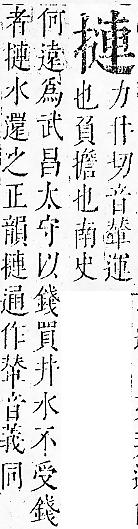 摙
力什切音輦運
也負擔也南史
何遠爲武昌太守以錢買井水不受錢
者摙水還之正韻摙通作輦音義同